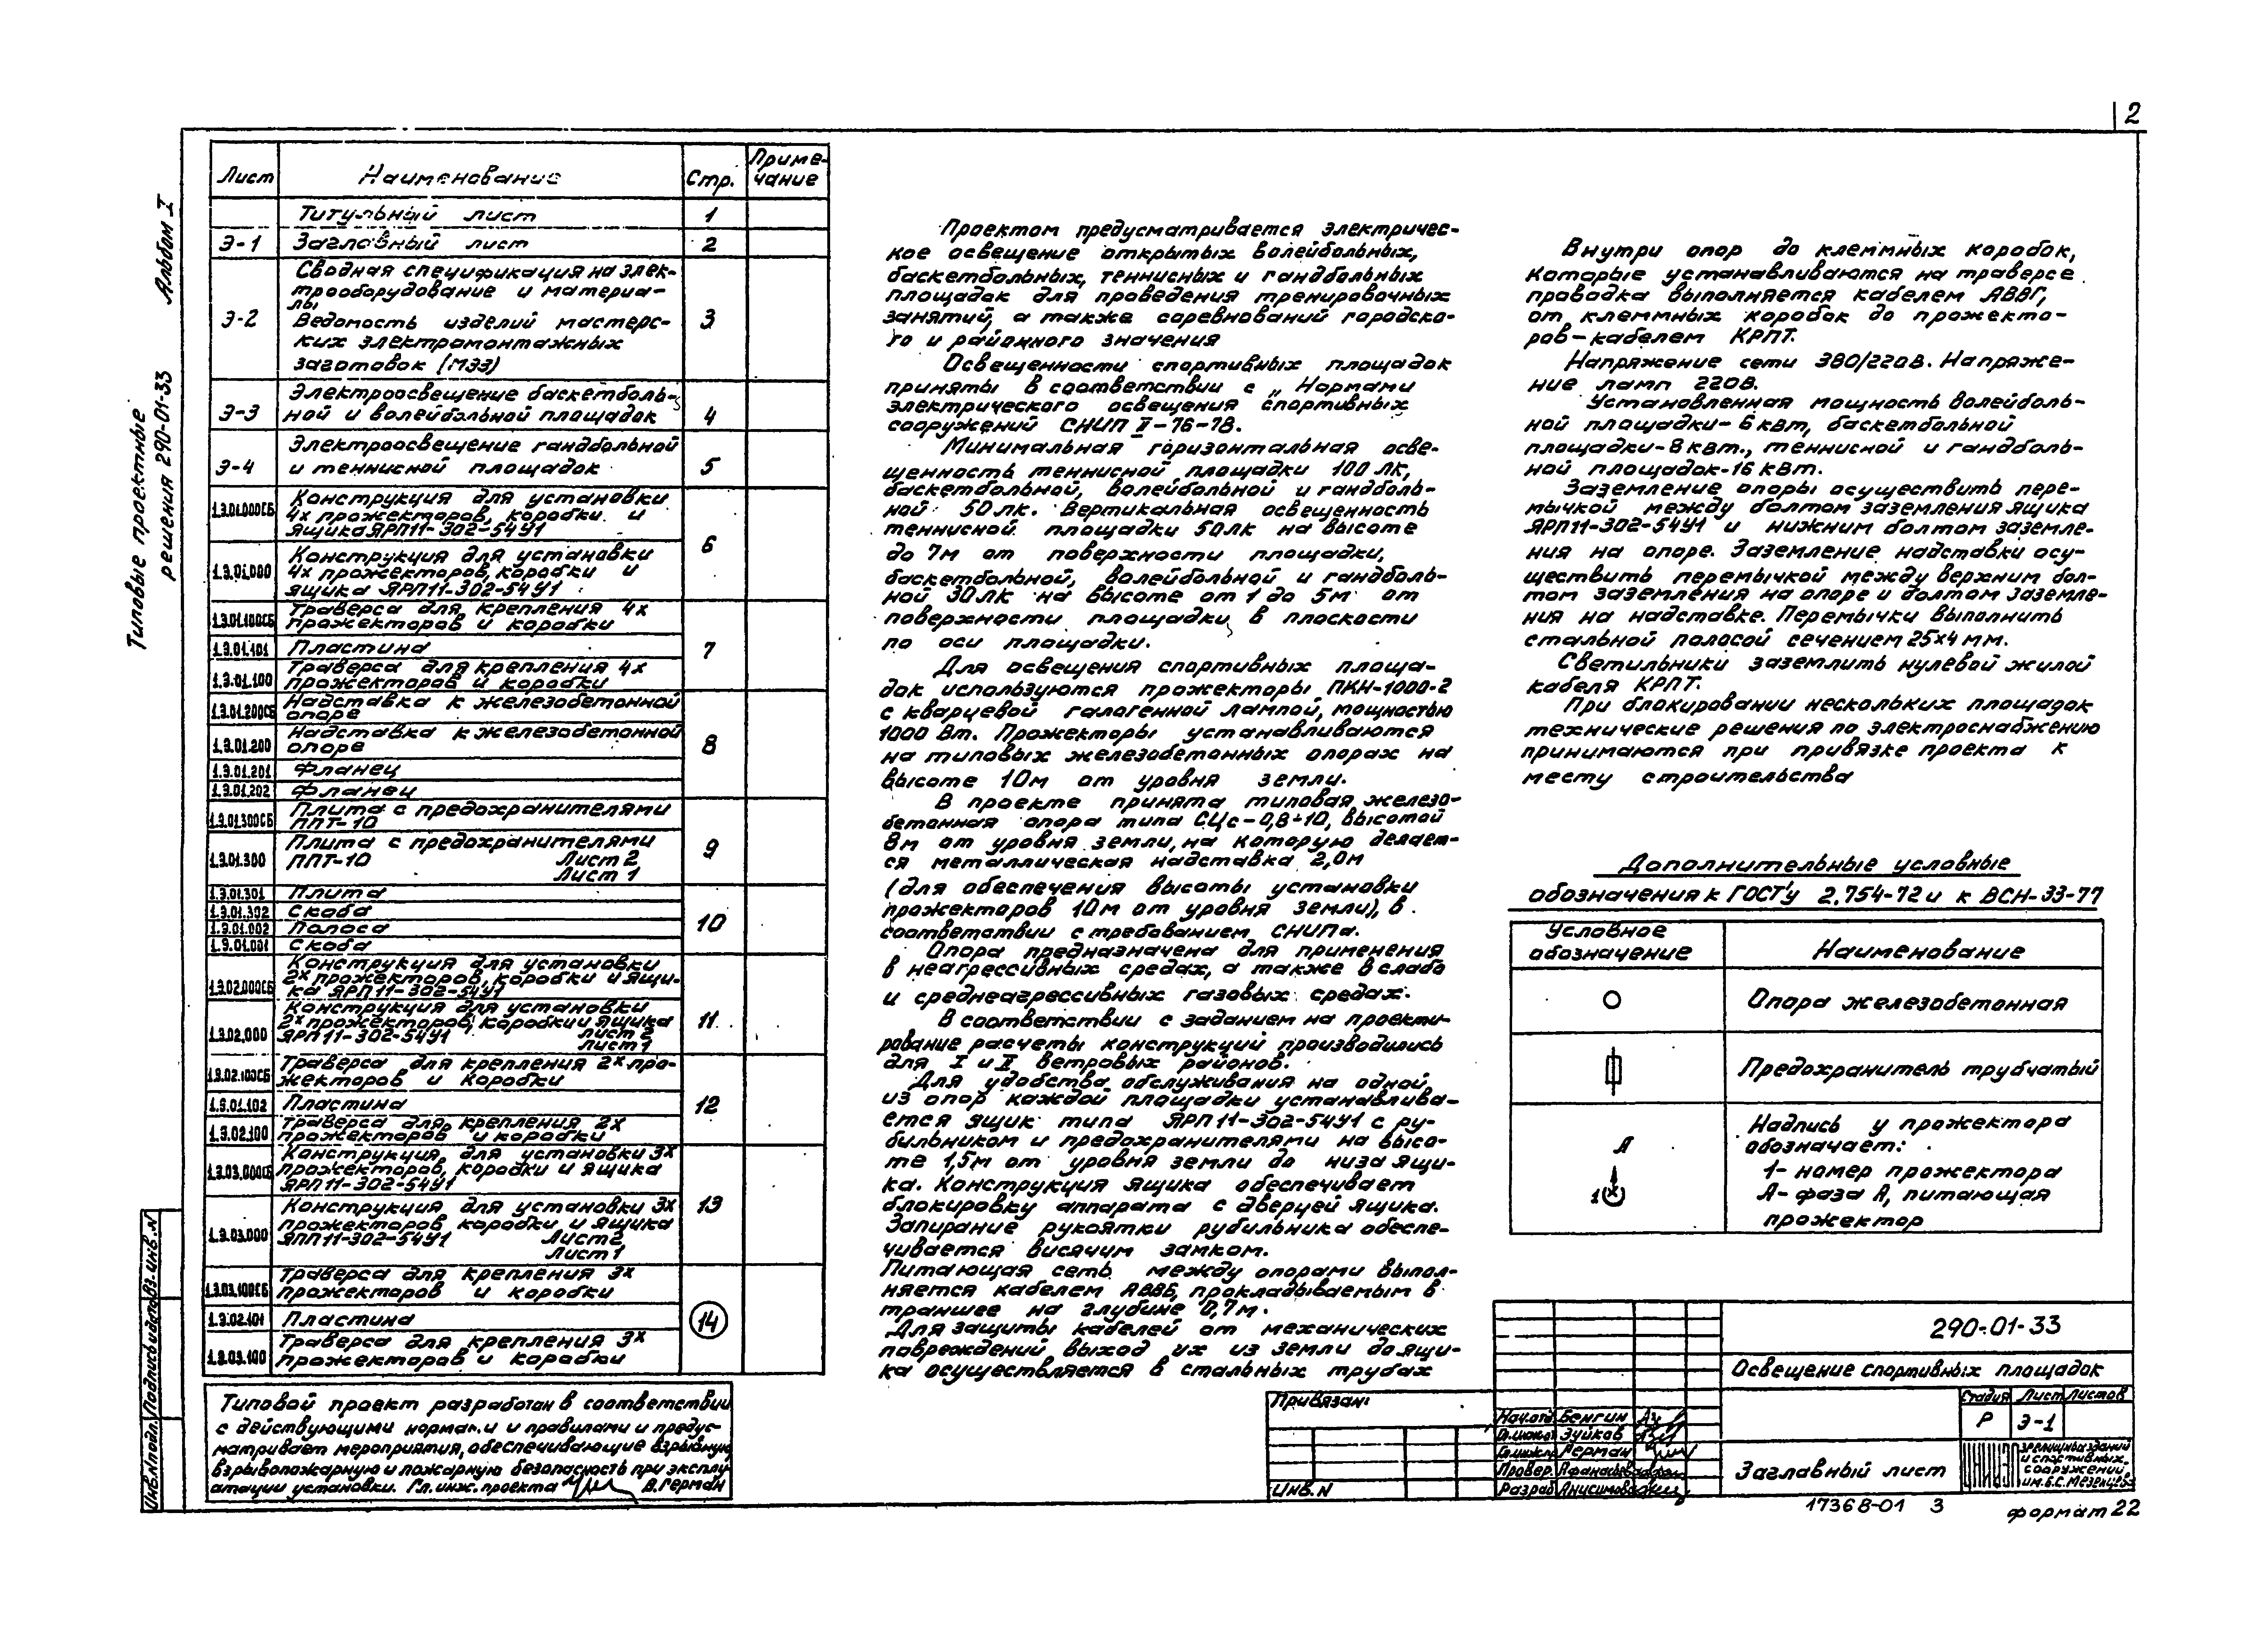 2
Типовые проектные
решения 290-01-33 Альбом I
Лист Наименование Стр. Приме-
чание
Титульный лист 1
Э-1 Заглавный лист 2
Э-2 Сводная спецификация на элек-
трооборудование и материа-
лы
Ведомость изделий мастерс-
ких электромонтажных
заготовок (МЭЗ) 3
Э-3 Электроосвещение баскетболь-
ной и волейбольной площадок 4
Э-4 Электроосвещение гандбольной
и теннисной площадок 5
1.Э.01.000СБ Конструкция для установки
4х прожекторов, коробки и
ящика ЯРП11-302-54У1 6
1.Э.01.000 Конструкция для установки
4х прожекторов, коробки и
ящика ЯРП11-302-54У1
1.Э.01.100СБ Траверса для крепления 4х
прожекторов и коробки 7
1.Э.01.101 Пластина
1.Э.01.100 Траверса для крепления 4х
прожекторов и коробки
1.Э.01.200СБ Надставка к железобетонной
опоре 8
1.Э.01.200 Надставка к железобетонной
опоре
1.Э.01.201 Фланец
1.Э.01.202 Фланец
1.Э.01.300СБ Плита с предохранителями
ППТ-10 9
1.Э.01.300 Плита с предохранителями
ППТ-10 Лист 2
Лист 1
1.Э.01.301 Плита 10
1.Э.01.302 Скоба
1.Э.01.002 Полоса
1.Э.01.001 Скоба
1.Э.02.000СБ Конструкция для установки
2х прожекторов, коробки и ящи-
ка ЯРП11-302-54У1 11
1.Э.02.000 Конструкция для установки
2х прожекторов, коробки и ящика
ЯРП11-302-54У1 Лист 2
Лист 1
1.Э.02.100СБ Траверса для крепления 2х про-
жекторов и коробки 12
1.Э.01.102 Пластина
1.Э.02.100 Траверса для крепления 2х
прожекторов и коробки
1.Э.03.000СБ Конструкция для установки 3х
прожекторов, коробки и ящика
ЯРП11-302-54У1 13
1.Э.03.000 Конструкция для установки 3х
прожекторов, коробки и ящика
ЯРП11-302-54У1 Лист 2
Лист 1
1.Э.03.100СБ Траверса для крепления 3х
прожекторов и коробки 14
1.Э.02.101 Пластина
1.Э.03.100 Траверса для крепления 3х
прожекторов и коробки
Типовой проект разработан в соответствии
с действующими нормами и правилами и предус-
матривает мероприятия, обеспечивающие взрывную,
взрывопожарную и пожарную безопасность при эксплу-
атации установки. Гл. инж. проекта В.Герман
Проектом предусматривается электричес-
кое освещение открытых волейбольных,
баскетбольных, теннисных и гандбольных
площадок для проведения тренировочных
занятий, а также соревнований городско-
го и районного значения
Освещенности спортивных площадок
приняты в соответствии с „Нормами
электрического освещения спортивных
сооружений СНИП II-76-78.
Минимальная горизонтальная осве-
щенность теннисной площадки 100 лк,
баскетбольной, волейбольной и гандболь-
ной 50 лк. Вертикальная освещенность
теннисной площадки 50 лк на высоте
до 7м от поверхности площадки,
баскетбольной, волейбольной и гандболь-
ной 30 лк на высоте от 1 до 5м от
поверхности площадки, в плоскости
по оси площадки.
Для освещения спортивных площа-
док используются прожекторы ПКН-1000-2
с кварцевой галогенной лампой, мощностью
1000 Вт. Прожекторы устанавливаются
на типовых железобетонных опорах на
высоте 10м от уровня земли.
В проекте принята типовая железо-
бетонная опора типа СЦс-0,8-10, высотой
8м от уровня земли, на которую делает-
ся металлическая надставка 2,0м
(для обеспечения высоты установки
прожекторов 10м от уровня земли), в
соответствии с требованием СНИПа.
Опора предназначена для применения
в неагрессивных средах, а также в слабо
и среднеагрессивных газовых средах.
В соответствии с заданием на проекти-
рование расчеты конструкций производились
для I и II ветровых районов.
Для удобства обслуживания на одной
из опор каждой площадки устанавлива-
ется ящик типа ЯРП11-302-54У1 с ру-
бильником и предохранителями на высо-
те 1,5м от уровня земли до низа ящи-
ка. Конструкция ящика обеспечивает
блокировку аппарата с дверцей ящика.
Запирание рукоятки рубильника обеспе-
чивается висячим замком.
Питающая сеть между опорами выпол-
няется кабелем АВВБ, прокладываемым в
траншее на глубине 0,7м.
Для защиты кабелей от механических
повреждений выход их из земли до ящи-
ка осуществляется в стальных трубах
Внутри опор до клеммных коробок,
которые устанавливаются на траверсе
проводка выполняется кабелем АВВГ,
от клеммных коробок до прожекто-
ров-кабелем КРПТ.
Напряжение сети 380/220В. Напряже-
ние ламп 220В.
Установленная мощность волейболь-
ной площадки- 6 квт, баскетбольной
площадки-8 квт., теннисной и гандболь-
ной площадок-16 квт.
Заземление опоры осуществить пере-
мычкой между болтом заземления ящика
ЯРП11-302-54У1 и нижним болтом заземле-
ния на опоре. Заземление надставки осу-
ществить перемычкой между верхним бол-
том заземления на опоре и болтом заземле-
ния на надставке. Перемычки выполнить
стальной полосой сечением 25х4 мм.
Светильники заземлить нулевой жилой
кабеля КРПТ.
При блокировании нескольких площадок
технические решения по электроснабжению
принимаются при привязке проекта к
месту строительства
Дополнительные условные
обозначения к ГОСТ'у 2.754-72 и к ВСН-33-77
Условное
обозначение Наименование
Опора железобетонная
Предохранитель трубчатый
А
1
Надпись у прожектора
обозначает:
1- номер прожектора
А- фаза А, питающая
прожектор
290-01-33
Освещение спортивных площадок
Стадия Лист Листов
Р Э-1
Заглавный лист
зрелищных зданий
и спортивных
сооружений
им. Б.С. Мезенцева
Привязан:
ИНВ. N
Нач.отд. Бенгин
Гл.инж.от Зуйков
Гл.инж.пр Герман
Провер. Афанасьева
Разраб. Анисимова
Инв.Nподл. Подпись и дата Вз. инв. N
17368-01 3
формат 22